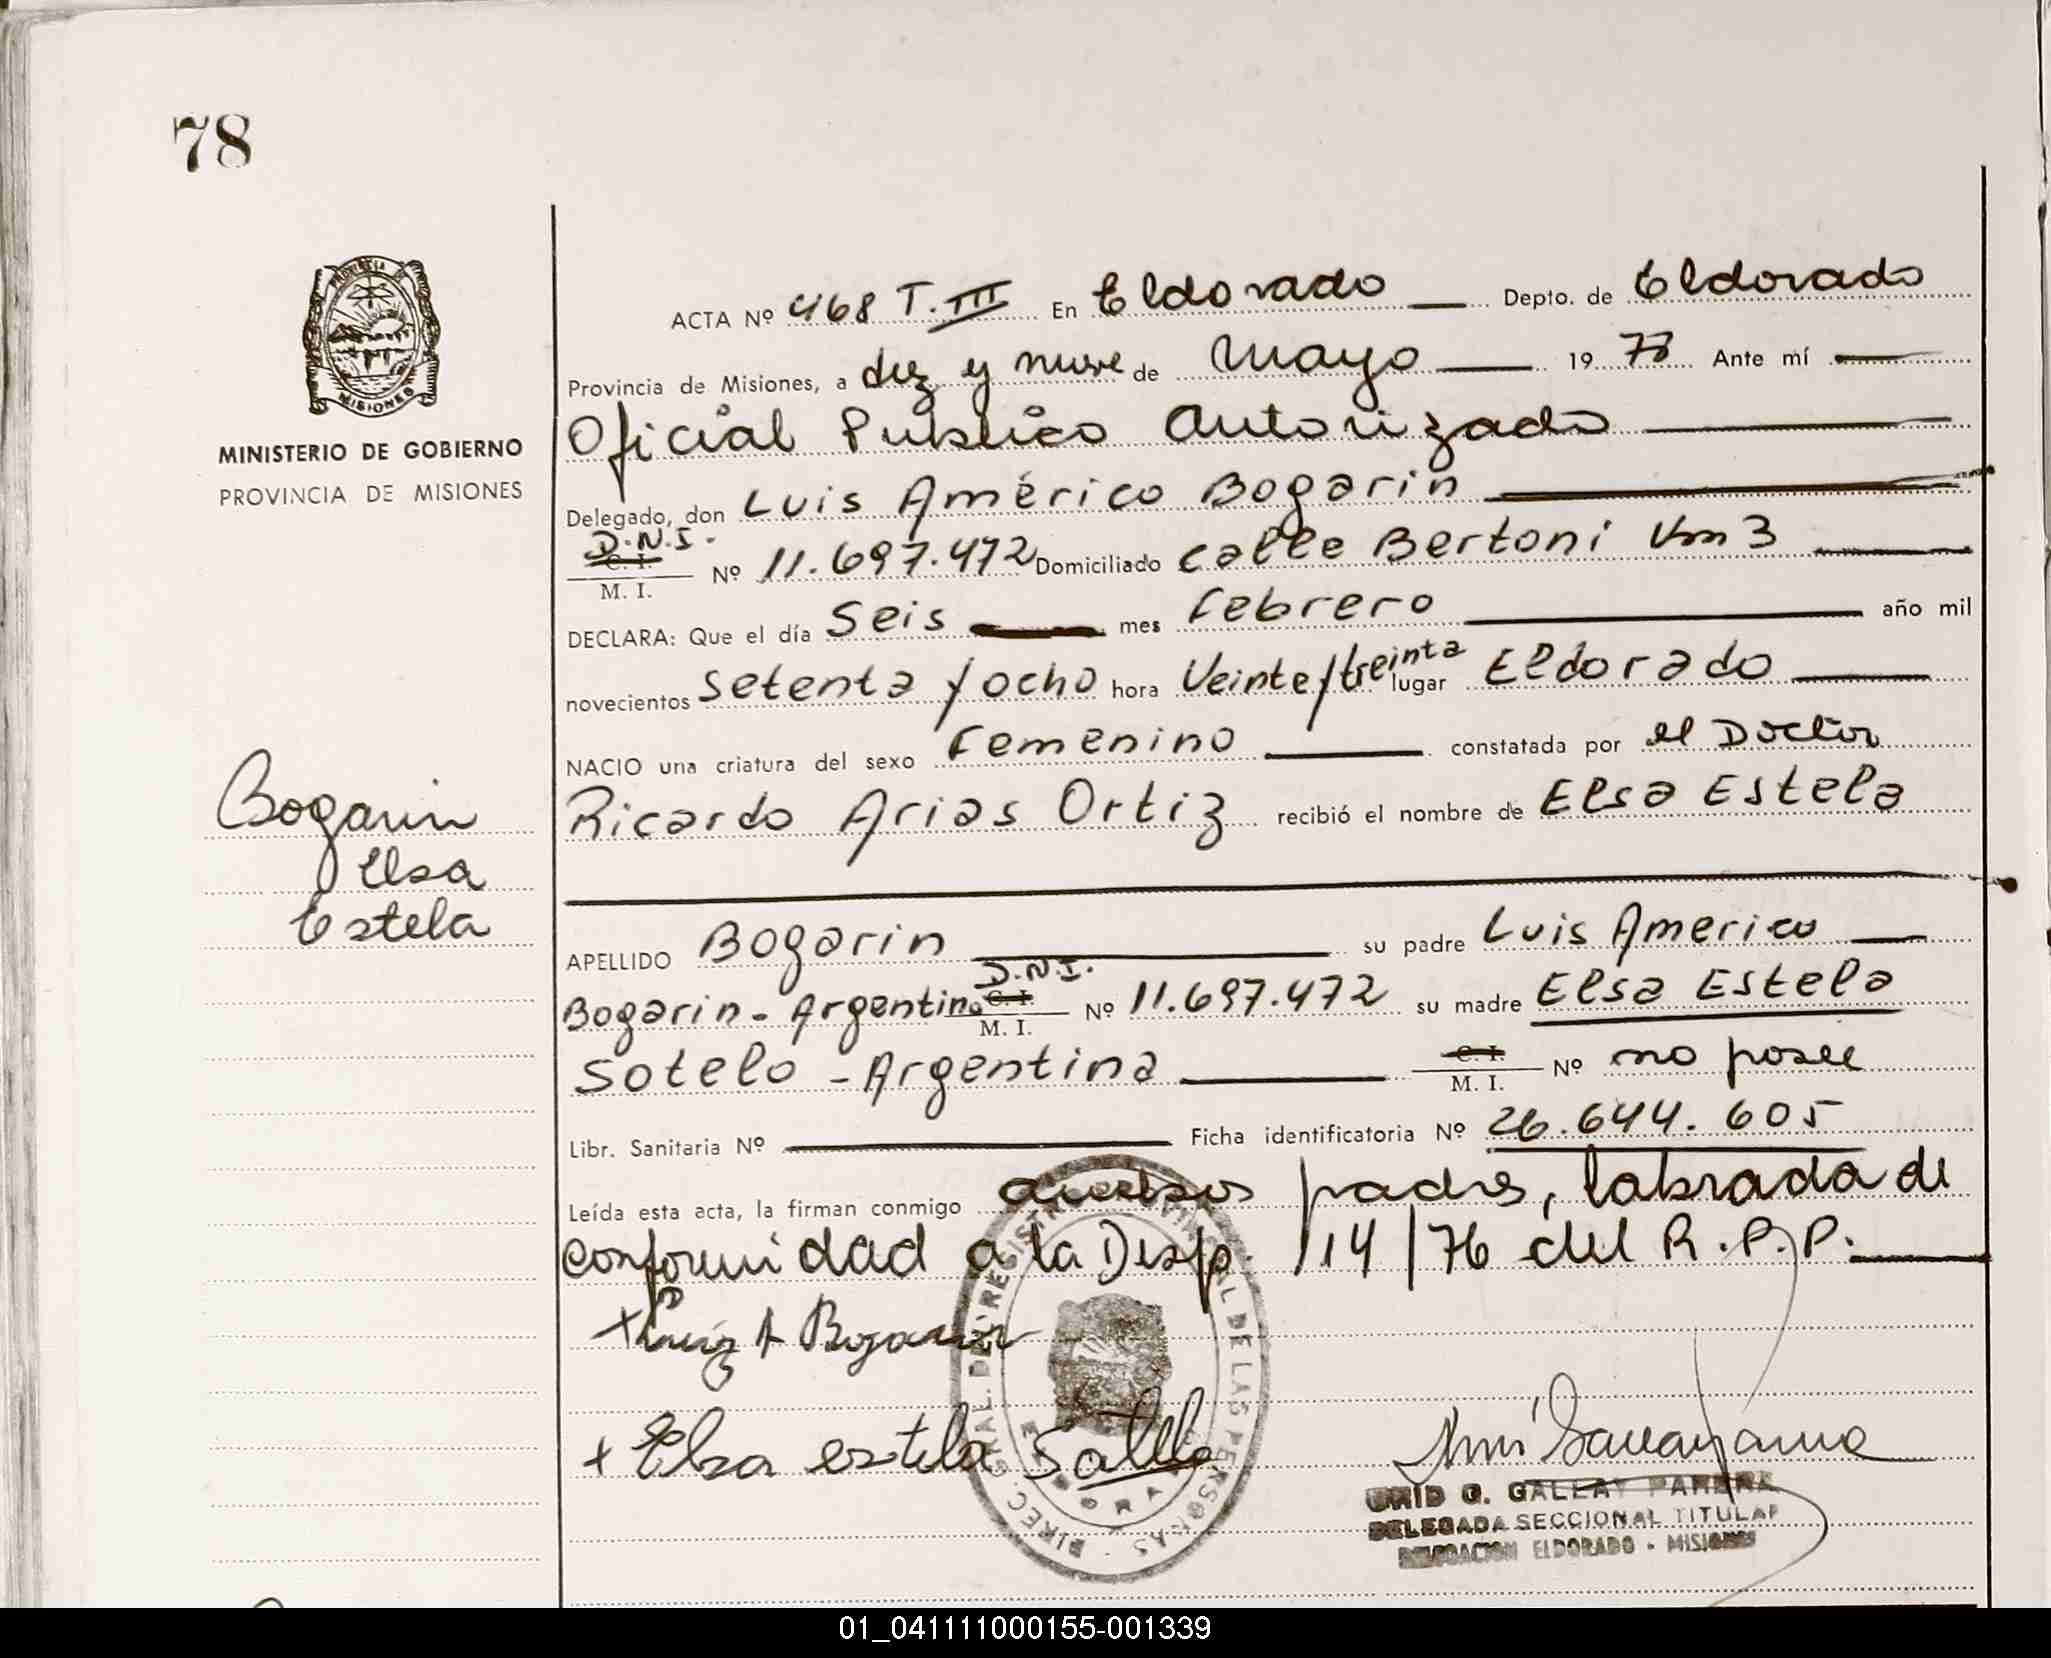 78
PROVINCIA DE
MISIONES
MINISTERIO DE GOBIERNO
PROVINCIA DE MISIONES
ACTA Nº 468 T. III En Eldorado Depto. de Eldorado
Provincia de Misiones, a diez y nueve de Mayo 19 78 Ante mí
Oficial Público Autorizado
Delegado, don Luis Américo Bogarin
D.N.I.
C. I.
M. I. Nº 11.697.472 Domiciliado calle Bertoni Km 3
DECLARA: Que el día Seis mes Febrero año mil
novecientos setenta y ocho hora Veinte/treinta lugar Eldorado
NACIO una criatura del sexo Femenino constatada por el Doctor
Ricardo Arias Ortiz recibió el nombre de Elsa Estela
Bogarin
Elsa
Estela
APELLIDO Bogarin su padre Luis Americo
D.N.I.
Bogarin - Argentino C. I. M. I. Nº 11.697.472 su madre Elsa Estela
Sotelo - Argentina C. I. M. I. Nº no posee
Libr. Sanitaria Nº Ficha identificatoria Nº 26.644.605
Leída esta acta, la firman conmigo padres, labrada de
conformidad a la Disp. 114/76 del R.P.P.
A Bogarin
+ Elsa estela Sotelo
DIREC. GRAL. DEL REGISTRO PROVINCIAL DE LAS PERSONAS
G. GALLAY PARERA
DELEGADA SECCIONAL TITULAR
DELEGACION ELDORADO - MISIONES
01_041111000155-001339